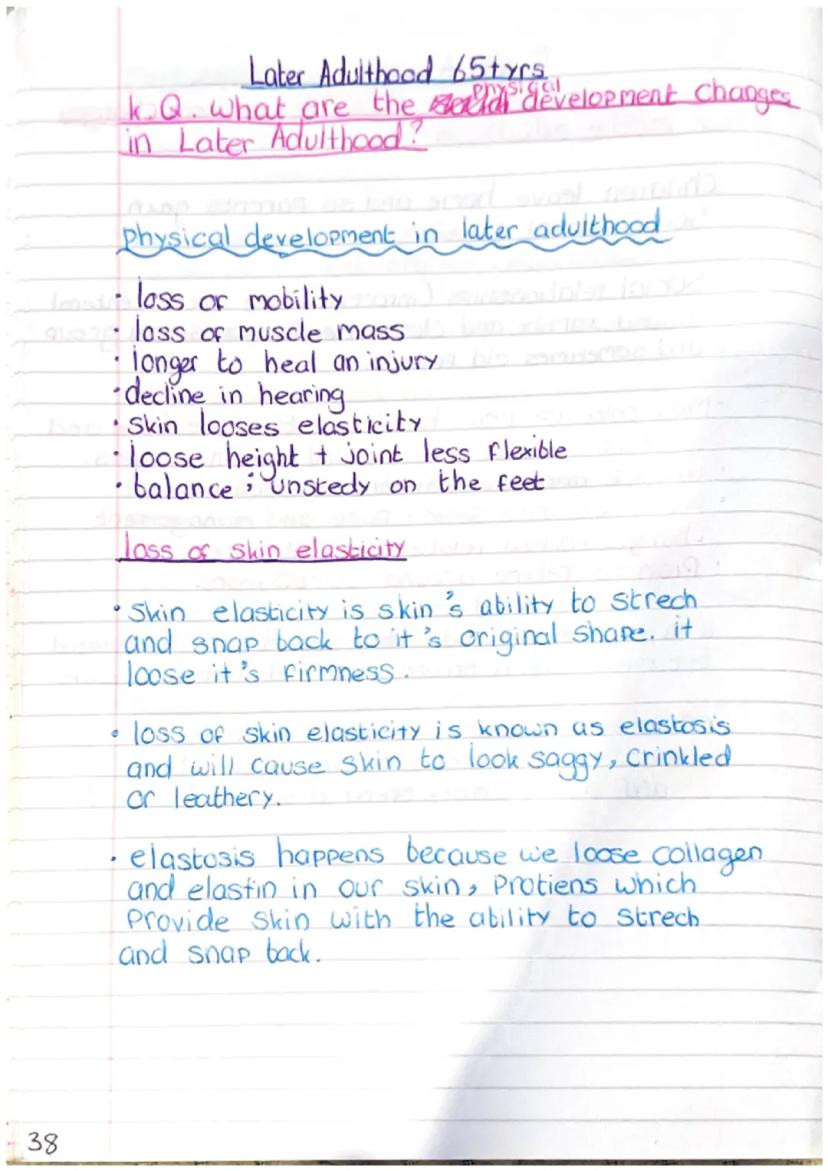 Later Adulthood 65+yrs
k.Q. what are the physical development changes
in Later Adulthood?
physical development in later adulthood
· loss of mobility
· loss of muscle mass
· longer to heal an injury
· decline in hearing
· Skin looses elasticity
· loose height + joint less flexible
· balance ; unstedy on the feet
loss of skin elasticity
· Skin elasticity is skin's ability to strech
and snap back to it's original shape. it
loose it's firmness.
· loss of skin elasticity is known as elastosis
and will cause skin to look saggy, crinkled
or leathery.
· elastosis happens because we loose collagen
and elastin in our skin, Protiens which
Provide skin with the ability to strech
and snap back.
38